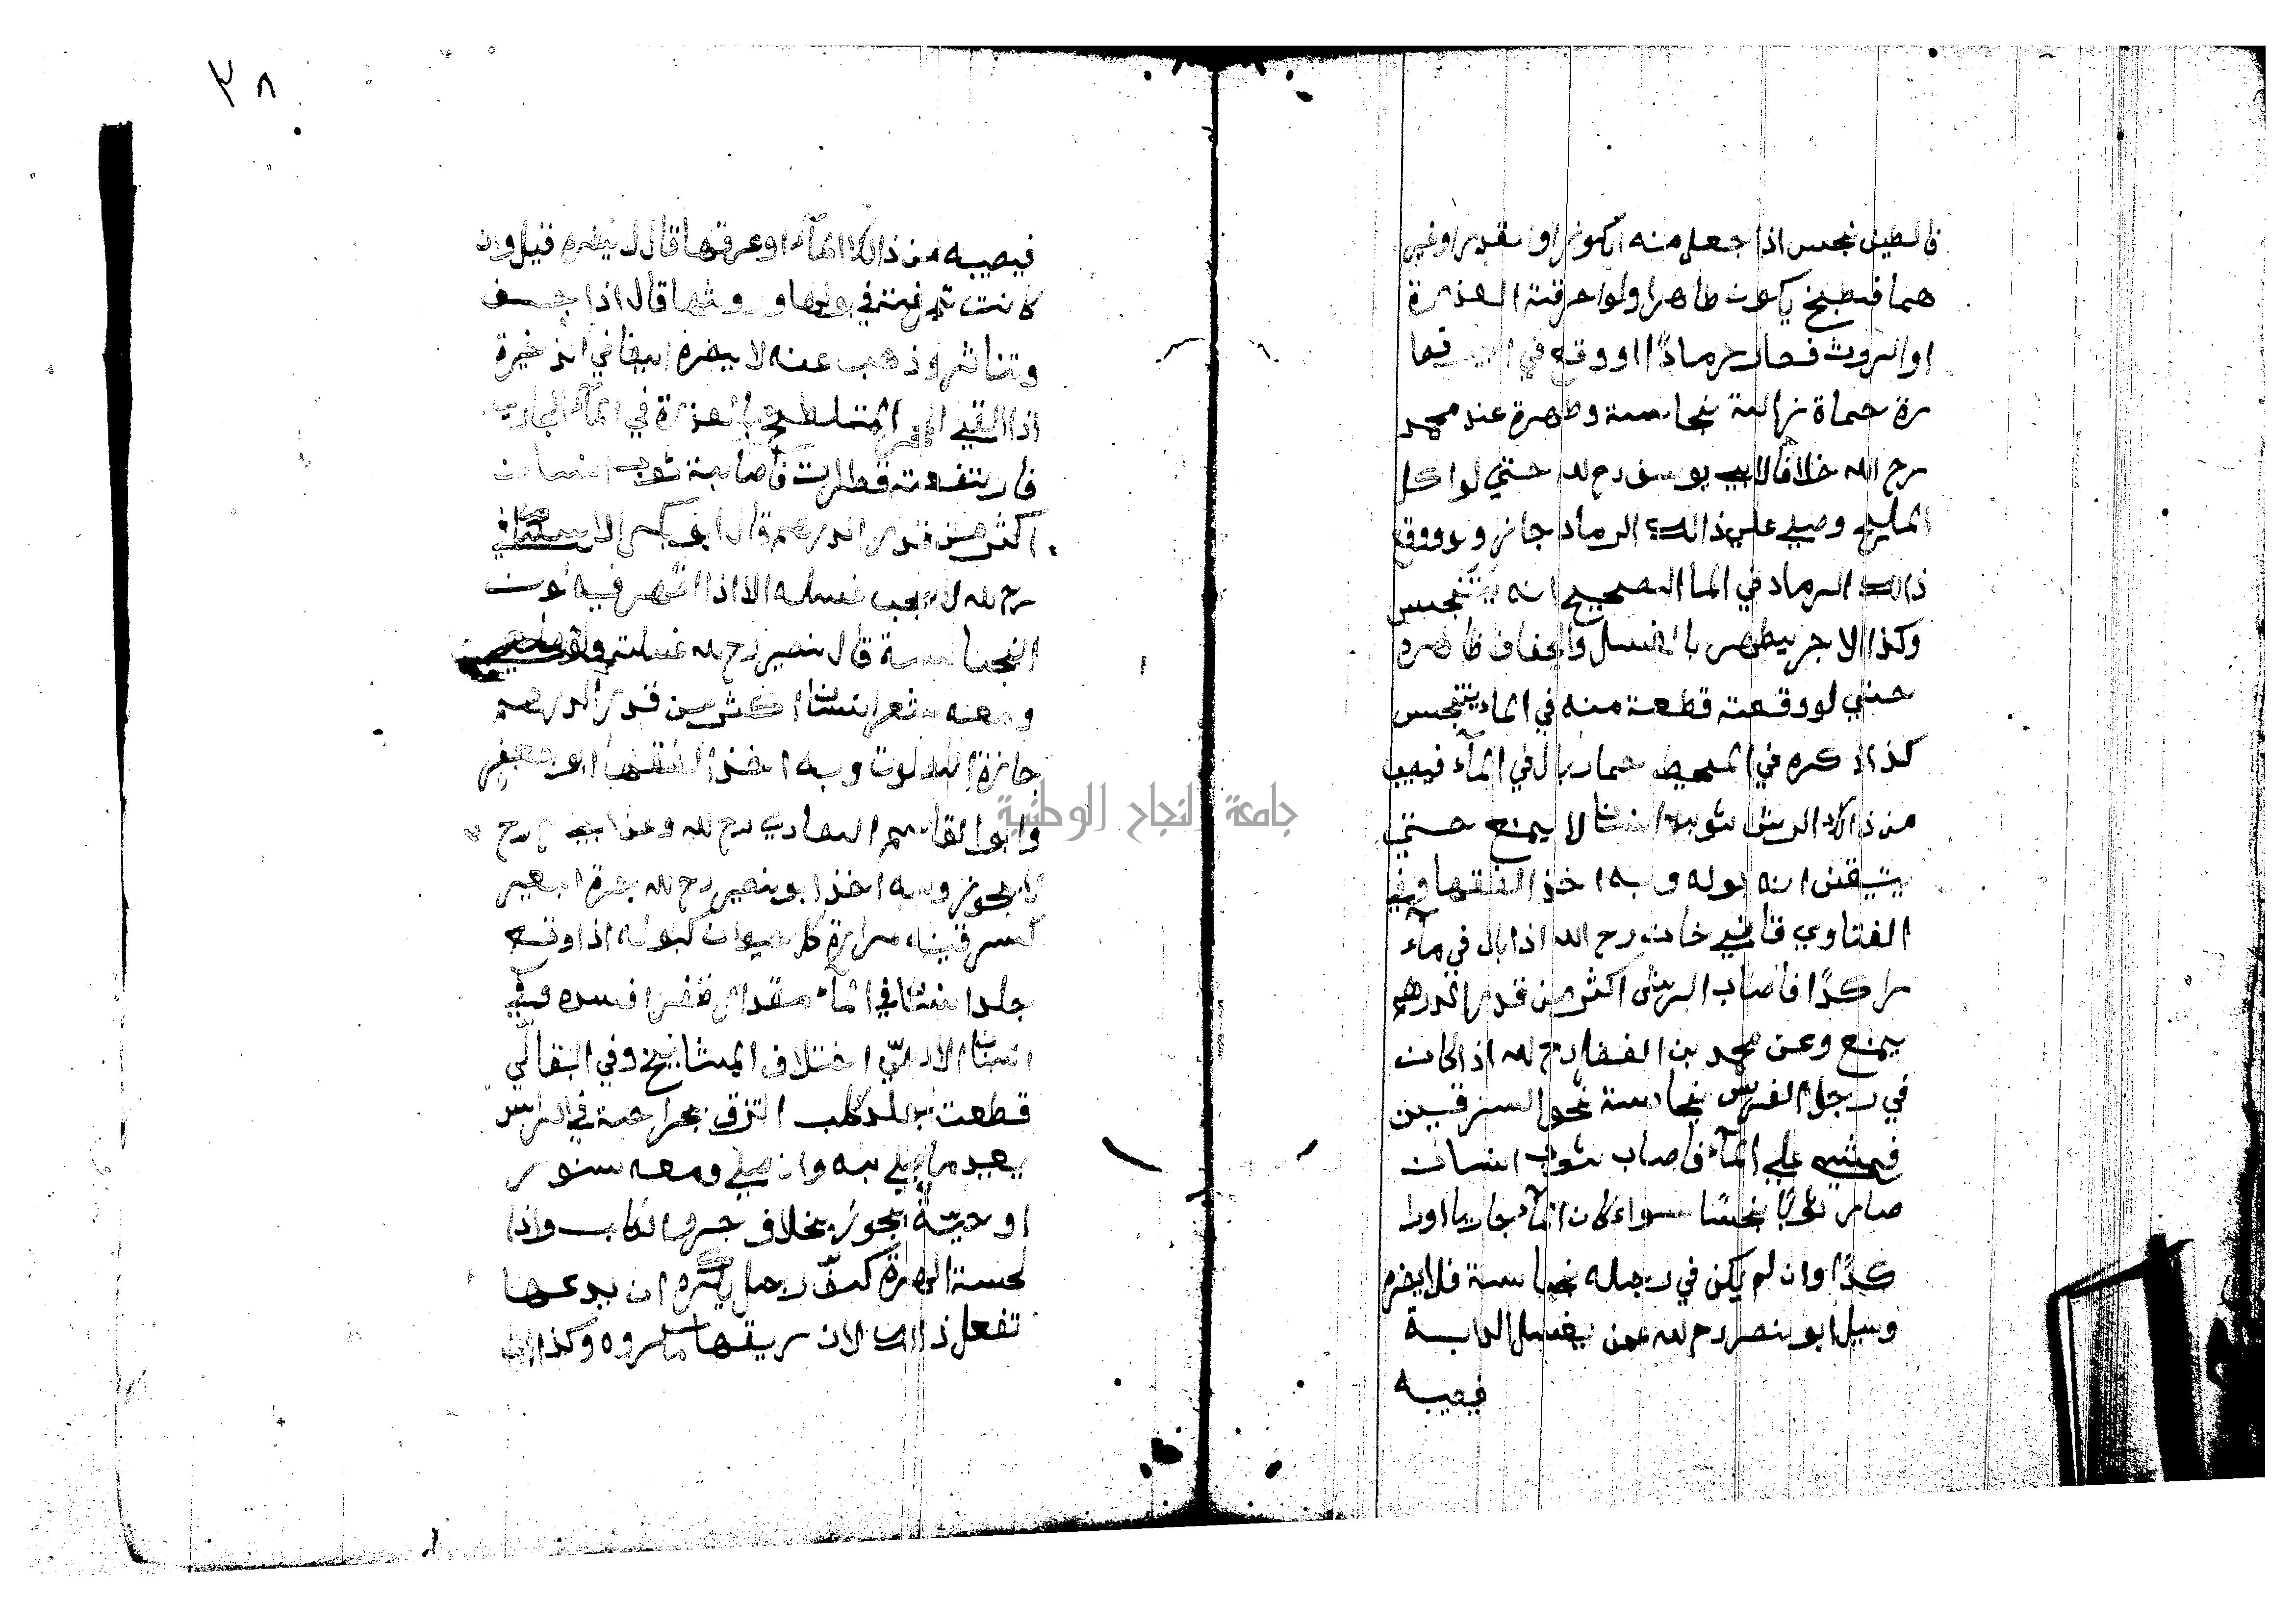 فالطين نجس اذا جعل منه الكوز او القدر او غير
هما فطبخ يكون طاهرا ولو احرقت العذرة
او الروث فصار رمادًا او وقع في
رة حماة زالت نجاسة وطهرة عند محمد
رح الله خلافا لابي يوسف رح لله حتي لو اكل
الملح وصلي علي ذالك الرماد جاز ولو وقع
ذالك الرماد في الما الصحيح انه يتنجس
وكذا الاجر يطهر بالغسل والجفاف ظاهره
حتي لو وقعت قطعة منه في الماء يتنجس
كذا ذكره في المحيط حمار بال في المآء فيصيب
من ذالك الرش ثوب انسان لا يمنع حتي
يتيقن انه بوله وبه اخذ الفقها وفي
الفتاوي قاضي خان رح الله اذا بال في مآء
راكدًا فاصاب الرش اكثر من قدر الدرهم
يمنع وعن محمد بن الفضل رح لله اذا كان
في رجل الفرس نجاسة نحو السرقين
فمشي علي المآء فاصاب ثوب انسان
صار ثوبًا نجسًا سواء كان المآء جاريا او را
كدًا وان لم يكن في رجله نجاسة فلا يضره
وسيل ابو نصر رح لله عمن يغسل الدابة
فيصيبه
٣٨
فيصيبه من ذالك المآء او عرقها قال لا يضره قيل وان
كانت تمرغت في بولها وروثها قال اذا جف
وتناثر وذهب عنه لا يضره ايضا في الذخيرة
اذا القي المتلطخ بالعذرة في المآء الجاري
فارتفعت قطرات فاصابة ثوب انسان
اكثر من قدر الدرهم قال ابو بكر الاسكاف
رح لله لا يجب غسله الا اذا اظهر فيه لون
النجاسة قال نصير رح لله غسلت
ومعه شعر انسان اكثر من قدر الدرهم
جازة الصلوت وبه اخذ الفقها ابو جعفر
وابو القاسم الصفاري رح لله وعن ابي رح
لا يجوز وبه اخذ ابو نصير رح لله بجرة البعير
كسرقينه مرارة كل حيوان كبوله اذا وقع
جلد انسان في المآء مقدار ظفر افسده وفي
اسنان الادمي اختلاف المشايخ وفي البقالي
قطعت جلد كلب التزق بجراحة في الراس
يعيد ما صلي به وان صلي ومعه سنور
او حية يجوز بخلاف جرو الكلب واذا
لحسة الهرة كف رجل يكره ان يدعها
تفعل ذالك لان ريقها مكروه وكذالك
جامعة النجاح الوطنية